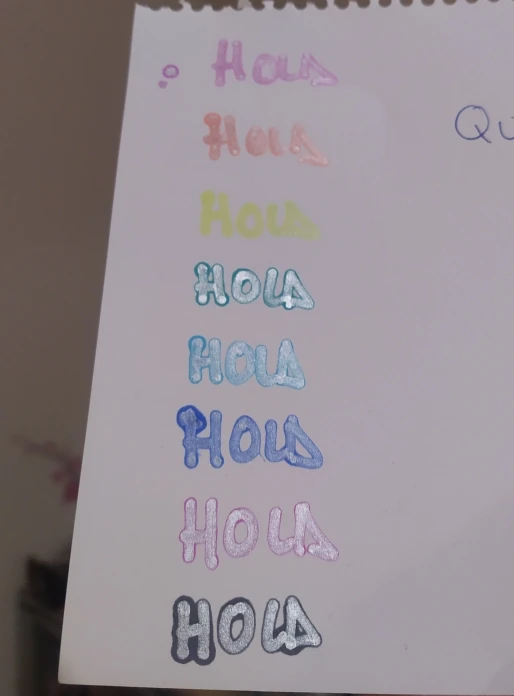 Hola
Hola
Hola
HOLA
HOLA
HOLA
HOLA
HOLA